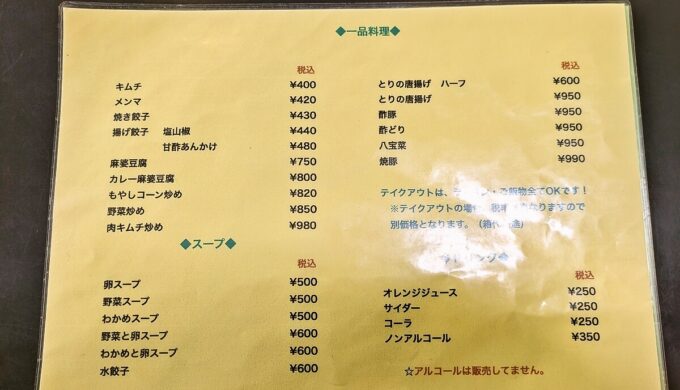 ◆一品料理◆
税込
キムチ ¥400
メンマ ¥420
焼き餃子 ¥430
揚げ餃子 塩山椒 ¥440
甘酢あんかけ ¥480
麻婆豆腐 ¥750
カレー麻婆豆腐 ¥800
もやしコーン炒め ¥820
野菜炒め ¥850
肉キムチ炒め ¥980
税込
とりの唐揚げ ハーフ ¥600
とりの唐揚げ ¥950
酢豚 ¥950
酢どり ¥950
八宝菜 ¥950
焼豚 ¥990
テイクアウトは、 ご飯物全てOKです！
※テイクアウトの場合 なりますので
別価格となります。
◆スープ◆
税込
卵スープ ¥500
野菜スープ ¥500
わかめスープ ¥500
野菜と卵スープ ¥600
わかめと卵スープ ¥600
水餃子 ¥600
税込
オレンジジュース ¥250
サイダー ¥250
コーラ ¥250
ノンアルコール ¥350
☆アルコールは販売してません。